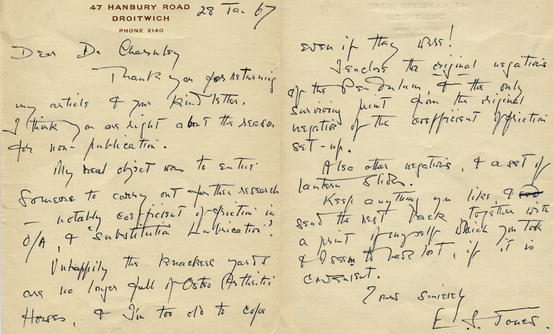 47 HANBURY ROAD
DROITWICH
PHONE 2140
28 Jan 67
Dear Dr Charnley
Thank you for returning
my article & your kind letter.
I think you are right about the reason
for non-publication.
My real object was to entice
someone to carry out further research
— notably coefficient of friction in
O/A, & "Substitution Lubrication".
Unhappily the knackers yards
are no longer full of Osteo Arthritic
Horses, & I'm too old to cope
even if they were!
I enclose the original negatives
of the Pendulum, & the only
surviving print from the original
negative of the coefficient of friction
set-up.
Also other negatives, & a set of
lantern slides.
Keep anything you like &
send the rest back together with
a print of myself which you took
& I seem to have lost, if it is
convenient.
Yours sincerely
E S Jones